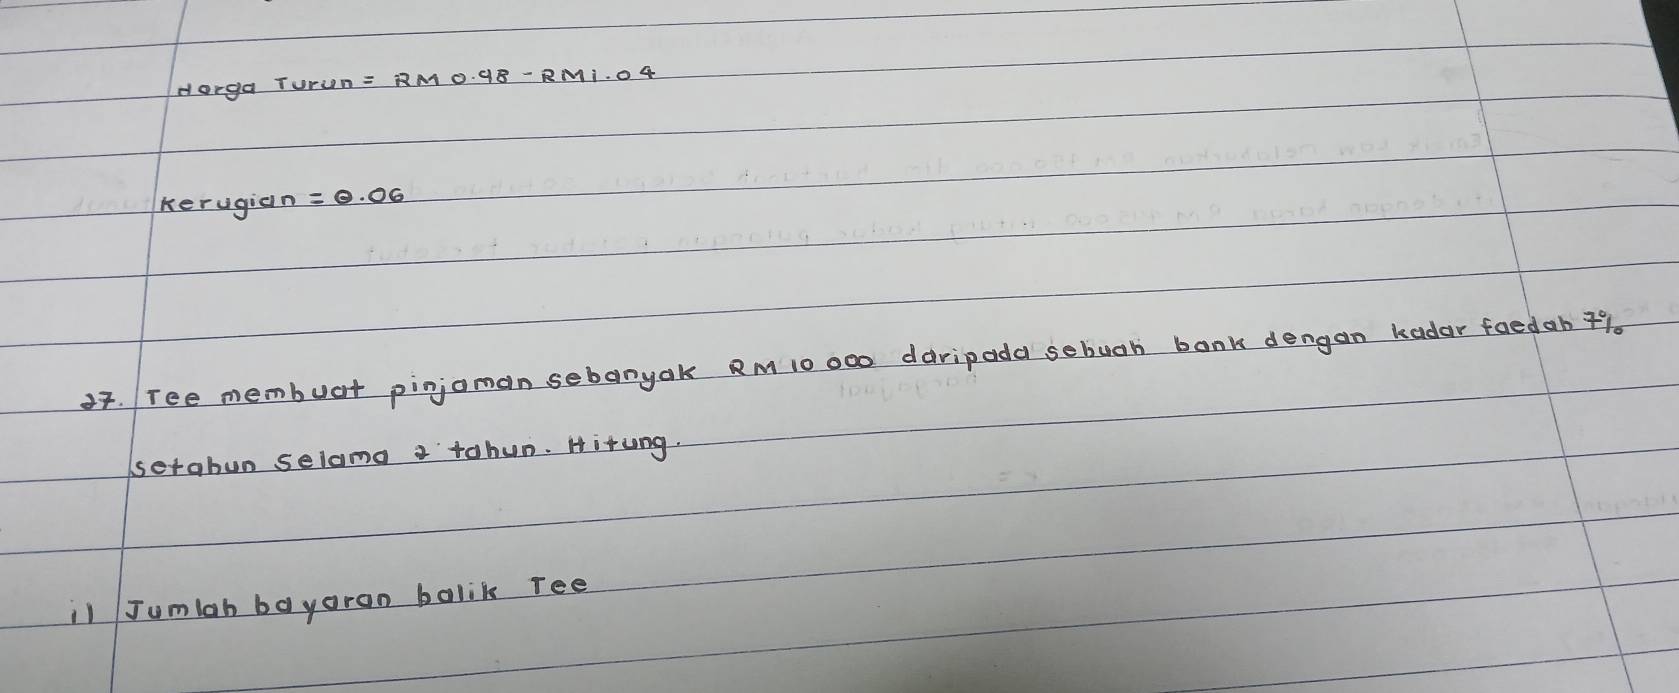 Harga Turun = RM 0.98 - RM1.04
Kerugian = 0.06
27. Tee membuat pinjaman sebanyak RM 10 000 daripada sebuah bank dengan kadar faedah 7%
setahun selama 2 tahun. Hitung.
i) Jumlah bayaran balik Tee